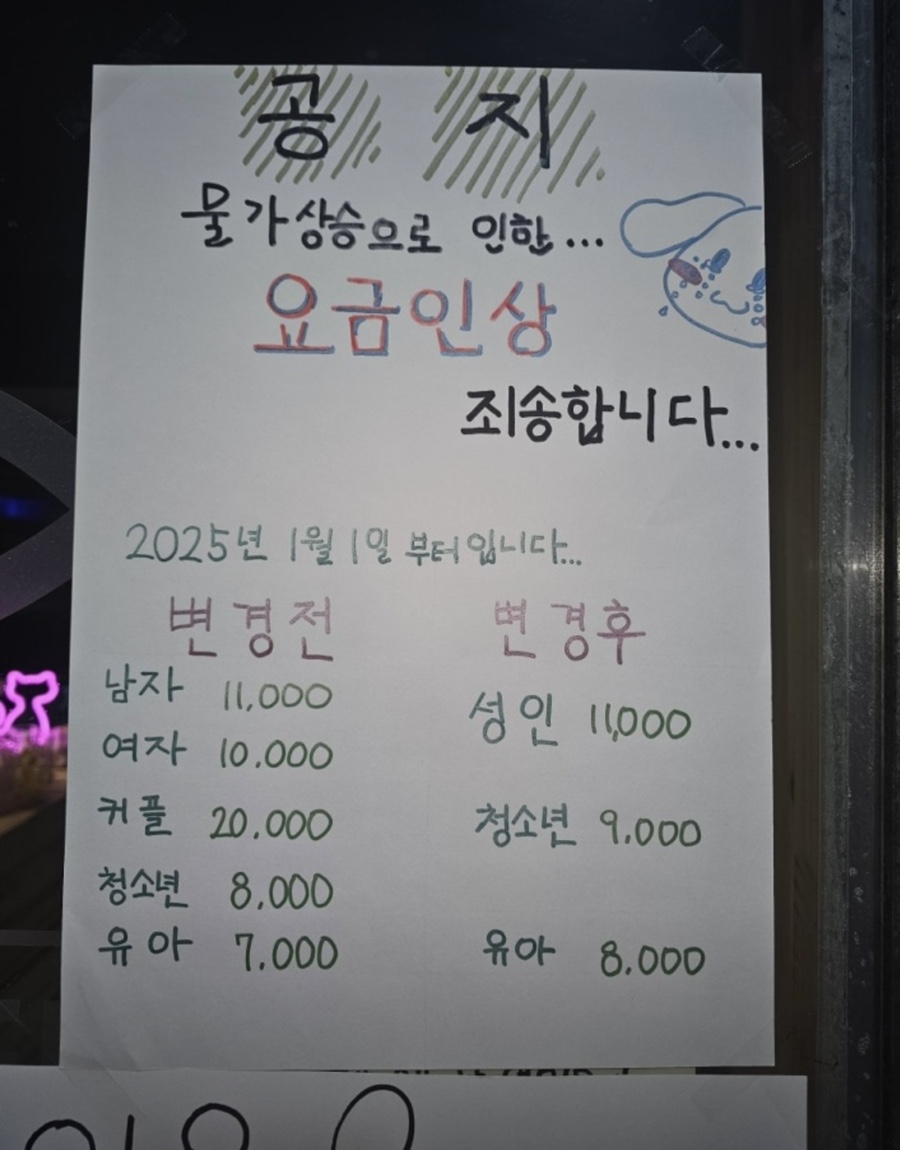 공 지
물가상승으로 인한...
요금인상
죄송합니다...
2025년 1월 1일 부터입니다...
변경전
남자 11,000
여자 10.000
커플 20.000
청소년 8.000
유아 7.000
변경후
성인 11,000
청소년 9.000
유아 8.000